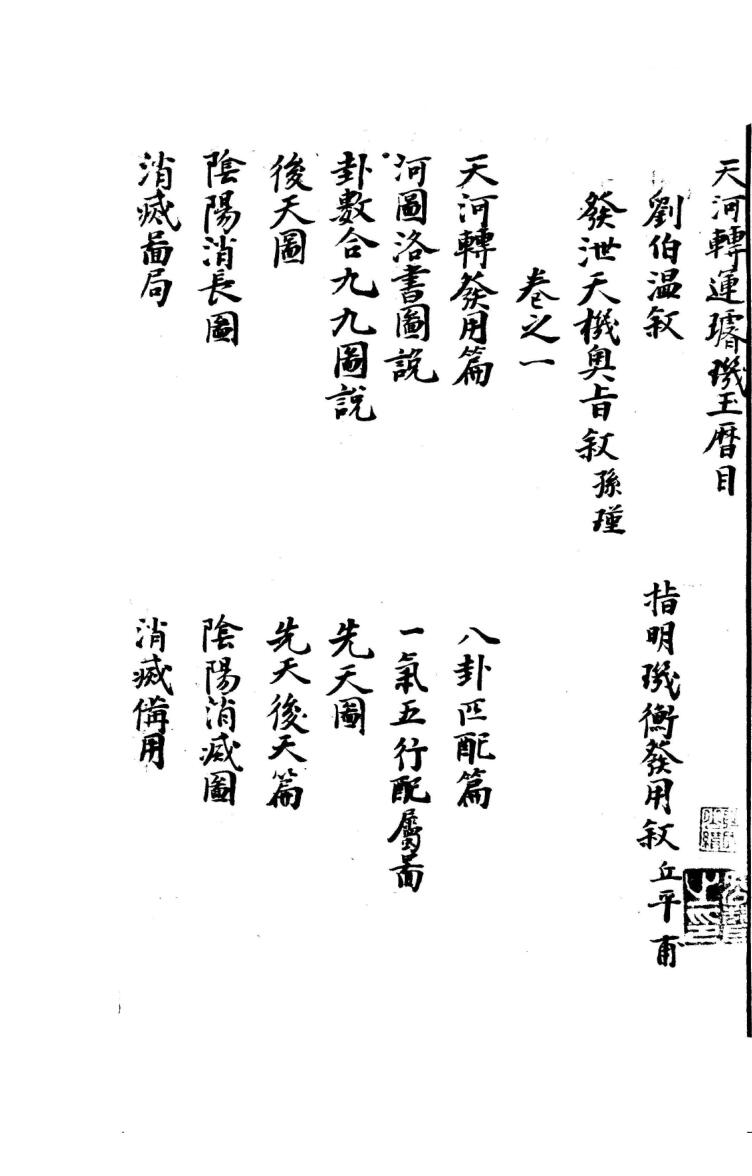 天河轉運璿璣玉曆目
劉伯温叙 指明璣衡發用叙 丘平甫
發泄天機奥旨叙 孫瑾
卷之一
天河轉發用篇 八卦匹配篇
河圖洛書圖説 一氣五行配屬啚
卦數合九九圖説 先天圖
後天圖 先天後天篇
陰陽消長圖 陰陽消滅圖
消滅啚局 消滅備用